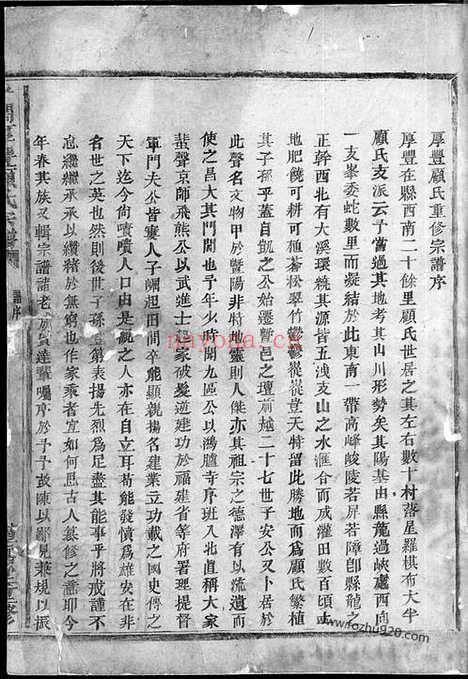 厚豐顧氏重修宗譜序
厚豐在縣西南二十餘里顧氏世居之其左右數十村落星羅棋布大半
顧氏支派云予嘗過其地考其山川形勢矣其陽基由縣龍過峽處西向
一支峯委蛇數里而凝結於此東南一帶高峰峻陵若屏若障卽縣龍之
正幹西北有大溪環繞其源皆五洩支山之水滙合而成灌田數百頃土
地肥饒可耕可植蒼松翠竹鬱鬱從從豈天特留此勝地而爲顧氏繁植
其子孫乎自凱之公始遷暨邑之壇前越二十七世子安公又卜居於
此聲名文物甲於暨陽非特地靈則人傑亦其祖宗之德澤有以流遺而
使之昌大其門閭也予年少時聞九區公以鴻臚寺序班入北雍大
蜚聲京師飛熊公以武進士起家破髮逆建功於福建省等府署理提督
軍門夫公皆寒人子崛起田間卒能顯親揚名建業立功載之國史傳之
天下迄今尙嘖嘖人口由是觀之人亦在自立耳苟能發憤爲雄安在非
名世之英也然則後世子孫第表揚先烈爲足盡其能事乎將戒謹不
怠繼繼承承以纘緖於無窮也作家乘者宜如何思古人裁修之意耶今
年春其族又輯宗譜諸老族貢達囑序於予予鼓陳以鄙見兼規以振
顧氏宗譜
譜序
nayona.cn
www.fozhu920.com